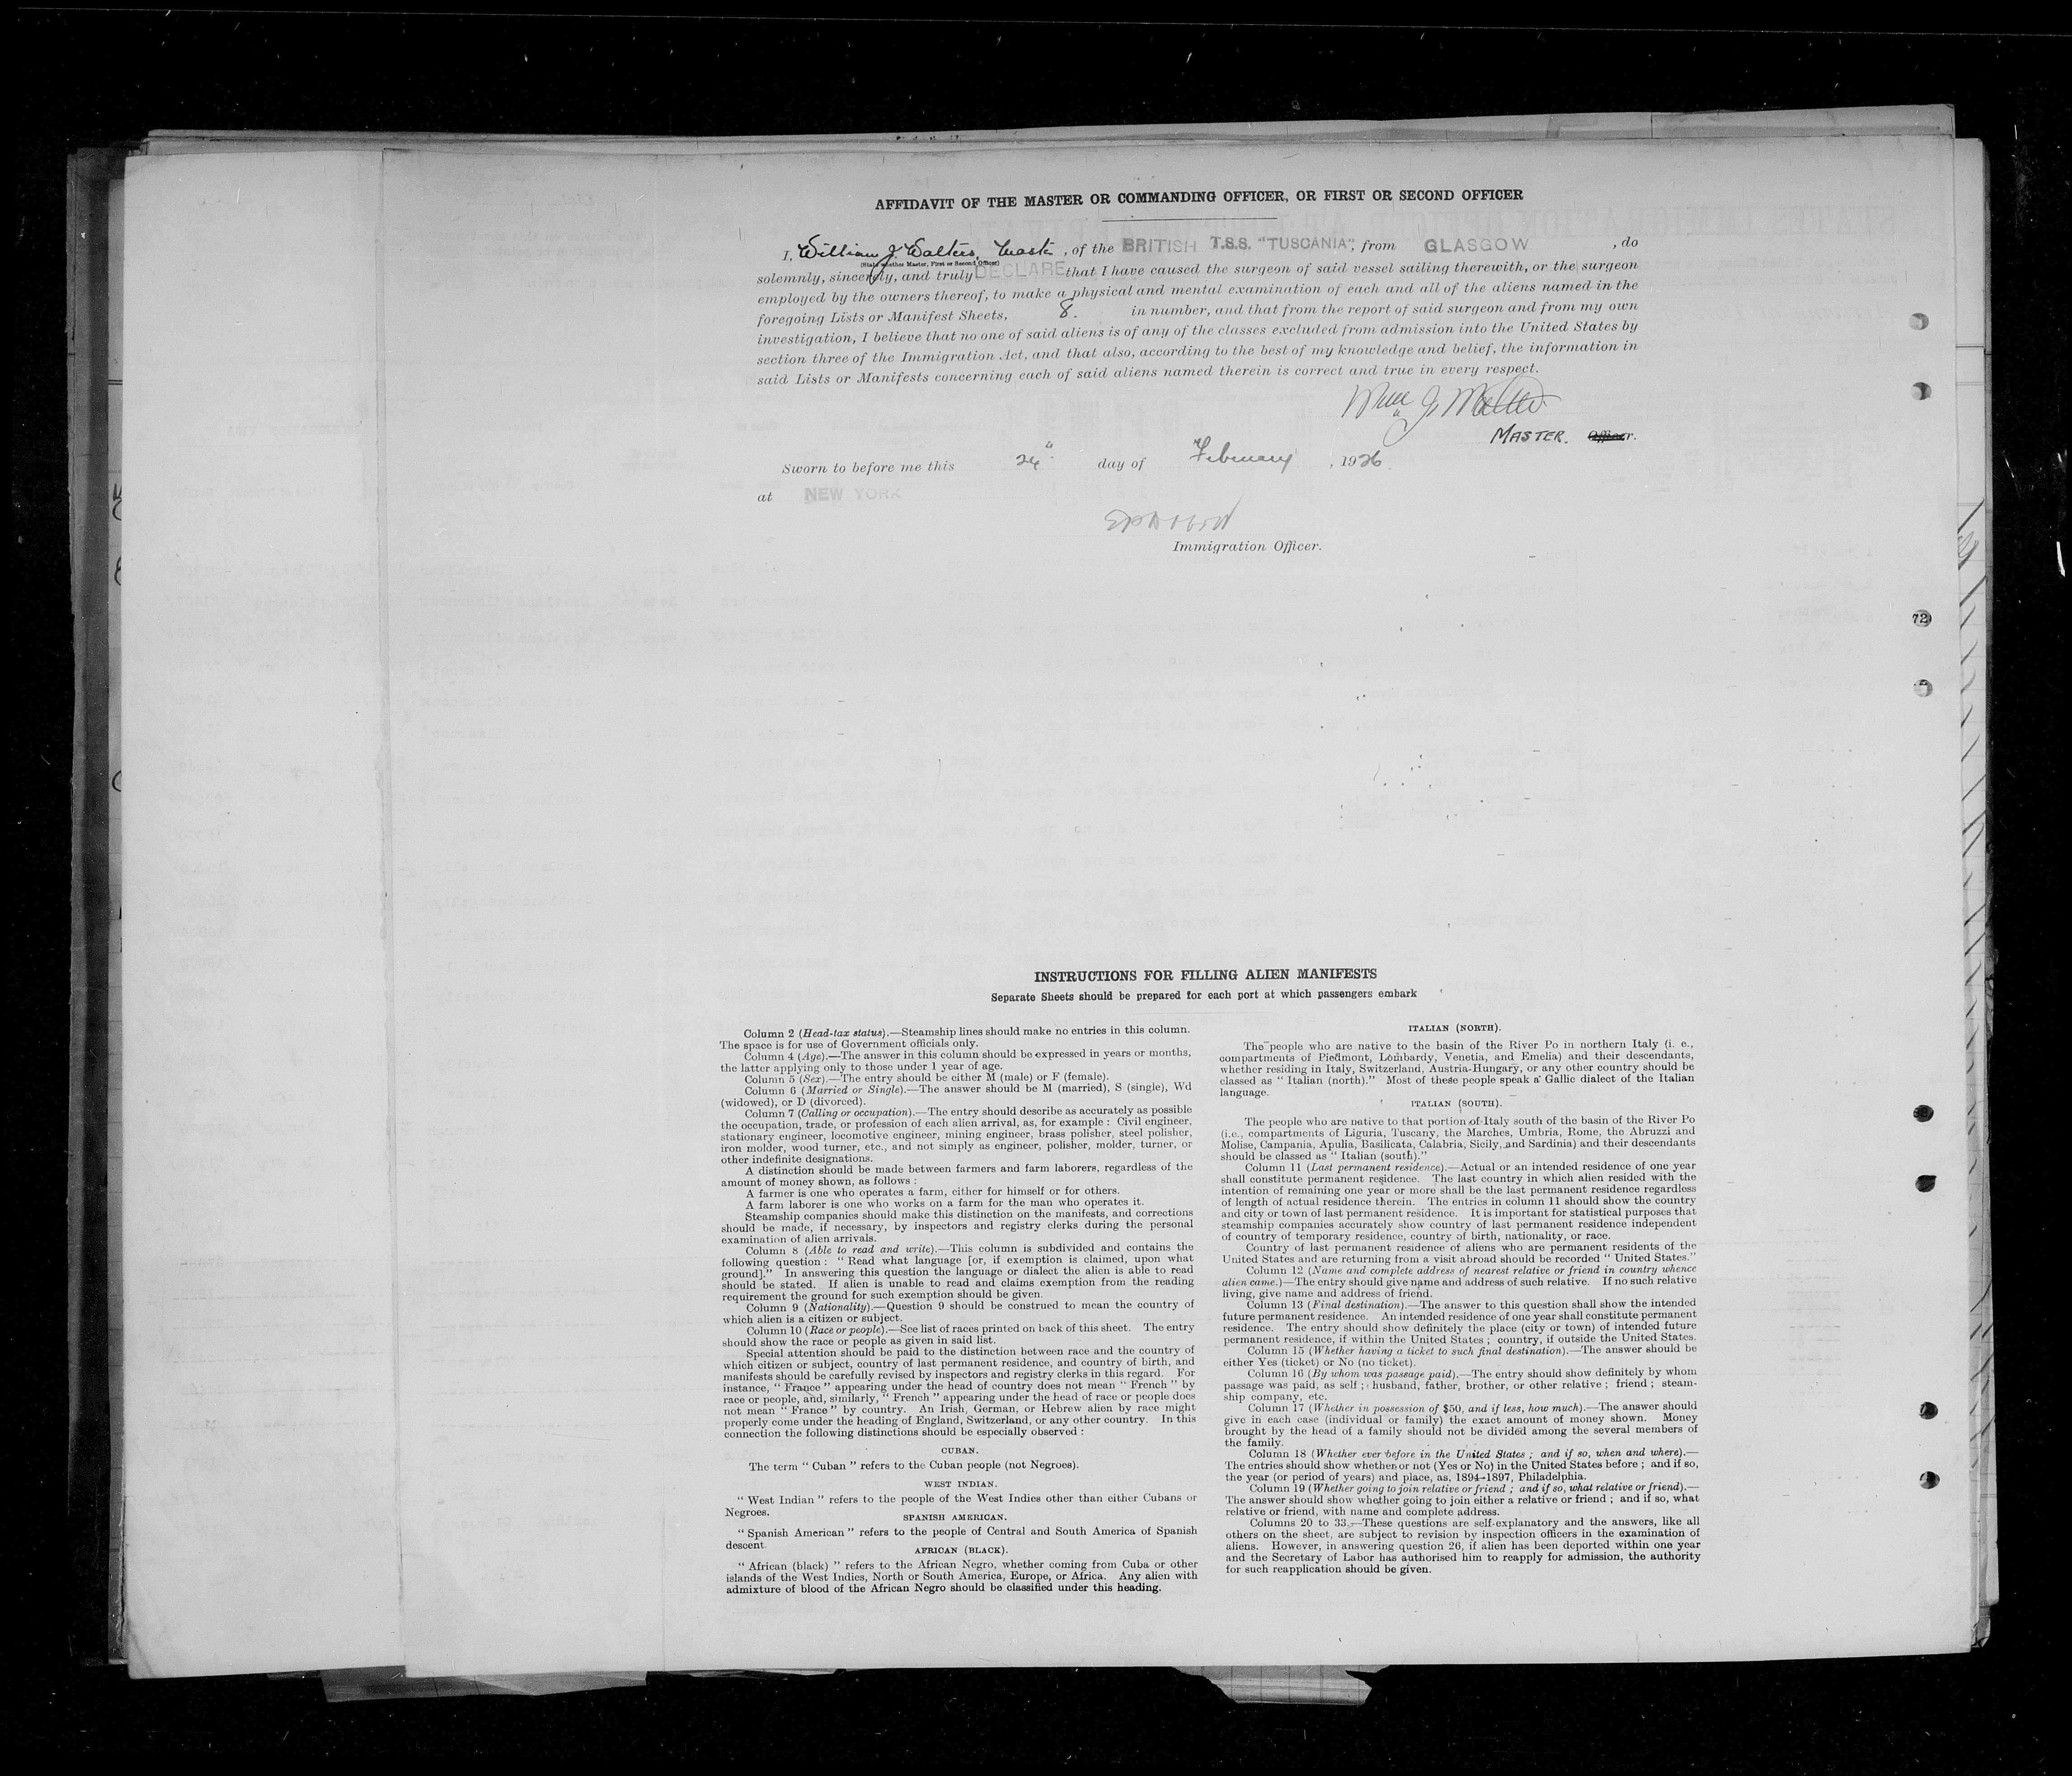 AFFIDAVIT OF THE MASTER OR COMMANDING OFFICER, OR FIRST OR SECOND OFFICER
I, William J. Walters, Master, of the BRITISH T.S.S. "TUSCANIA", from GLASGOW, do
(State whether Master, First or Second Officer)
solemnly, sincerely, and truly DECLARE that I have caused the surgeon of said vessel sailing therewith, or the surgeon
employed by the owners thereof, to make a physical and mental examination of each and all of the aliens named in the
foregoing Lists or Manifest Sheets, 8. in number, and that from the report of said surgeon and from my own
investigation, I believe that no one of said aliens is of any of the classes excluded from admission into the United States by
section three of the Immigration Act, and that also, according to the best of my knowledge and belief, the information in
said Lists or Manifests concerning each of said aliens named therein is correct and true in every respect.
Wm J Walters
MASTER. Officer.
Sworn to before me this 24" day of February, 1926.
at NEW YORK
Immigration Officer.
72
INSTRUCTIONS FOR FILLING ALIEN MANIFESTS
Separate Sheets should be prepared for each port at which passengers embark
Column 2 (Head-tax status).—Steamship lines should make no entries in this column.
The space is for use of Government officials only.
Column 4 (Age).—The answer in this column should be expressed in years or months,
the latter applying only to those under 1 year of age.
Column 5 (Sex).—The entry should be either M (male) or F (female).
Column 6 (Married or Single).—The answer should be M (married), S (single), Wd
(widowed), or D (divorced).
Column 7 (Calling or occupation).—The entry should describe as accurately as possible
the occupation, trade, or profession of each alien arrival, as, for example : Civil engineer,
stationary engineer, locomotive engineer, mining engineer, brass polisher, steel polisher,
iron molder, wood turner, etc., and not simply as engineer, polisher, molder, turner, or
other indefinite designations.
A distinction should be made between farmers and farm laborers, regardless of the
amount of money shown, as follows :
A farmer is one who operates a farm, either for himself or for others.
A farm laborer is one who works on a farm for the man who operates it.
Steamship companies should make this distinction on the manifests, and corrections
should be made, if necessary, by inspectors and registry clerks during the personal
examination of alien arrivals.
Column 8 (Able to read and write).—This column is subdivided and contains the
following question : " Read what language [or, if exemption is claimed, upon what
ground]." In answering this question the language or dialect the alien is able to read
should be stated. If alien is unable to read and claims exemption from the reading
requirement the ground for such exemption should be given.
Column 9 (Nationality).—Question 9 should be construed to mean the country of
which alien is a citizen or subject.
Column 10 (Race or people).—See list of races printed on back of this sheet. The entry
should show the race or people as given in said list.
Special attention should be paid to the distinction between race and the country of
which citizen or subject, country of last permanent residence, and country of birth, and
manifests should be carefully revised by inspectors and registry clerks in this regard. For
instance, " France " appearing under the head of country does not mean " French " by
race or people, and, similarly, " French " appearing under the head of race or people does
not mean " France " by country. An Irish, German, or Hebrew alien by race might
properly come under the heading of England, Switzerland, or any other country. In this
connection the following distinctions should be especially observed :
CUBAN.
The term " Cuban " refers to the Cuban people (not Negroes).
WEST INDIAN.
" West Indian " refers to the people of the West Indies other than either Cubans or
Negroes.
SPANISH AMERICAN.
" Spanish American " refers to the people of Central and South America of Spanish
descent.
AFRICAN (BLACK).
" African (black) " refers to the African Negro, whether coming from Cuba or other
islands of the West Indies, North or South America, Europe, or Africa. Any alien with
admixture of blood of the African Negro should be classified under this heading.
ITALIAN (NORTH).
The people who are native to the basin of the River Po in northern Italy (i. e.,
compartments of Piedmont, Lombardy, Venetia, and Emelia) and their descendants,
whether residing in Italy, Switzerland, Austria-Hungary, or any other country should be
classed as " Italian (north)." Most of these people speak a Gallic dialect of the Italian
language.
ITALIAN (SOUTH).
The people who are native to that portion of Italy south of the basin of the River Po
(i.e., compartments of Liguria, Tuscany, the Marches, Umbria, Rome, the Abruzzi and
Molise, Campania, Apulia, Basilicata, Calabria, Sicily, and Sardinia) and their descendants
should be classed as " Italian (south)."
Column 11 (Last permanent residence).—Actual or an intended residence of one year
shall constitute permanent residence. The last country in which alien resided with the
intention of remaining one year or more shall be the last permanent residence regardless
of length of actual residence therein. The entries in column 11 should show the country
and city or town of last permanent residence. It is important for statistical purposes that
steamship companies accurately show country of last permanent residence independent
of country of temporary residence, country of birth, nationality, or race.
Country of last permanent residence of aliens who are permanent residents of the
United States and are returning from a visit abroad should be recorded " United States."
Column 12 (Name and complete address of nearest relative or friend in country whence
alien came.)—The entry should give name and address of such relative. If no such relative
living, give name and address of friend.
Column 13 (Final destination).—The answer to this question shall show the intended
future permanent residence. An intended residence of one year shall constitute permanent
residence. The entry should show definitely the place (city or town) of intended future
permanent residence, if within the United States ; country, if outside the United States.
Column 15 (Whether having a ticket to such final destination).—The answer should be
either Yes (ticket) or No (no ticket).
Column 16 (By whom was passage paid).—The entry should show definitely by whom
passage was paid, as self ; husband, father, brother, or other relative ; friend ; steam-
ship company, etc.
Column 17 (Whether in possession of $50, and if less, how much).—The answer should
give in each case (individual or family) the exact amount of money shown. Money
brought by the head of a family should not be divided among the several members of
the family.
Column 18 (Whether ever before in the United States ; and if so, when and where).—
The entries should show whether or not (Yes or No) in the United States before ; and if so,
the year (or period of years) and place, as, 1894-1897, Philadelphia.
Column 19 (Whether going to join relative or friend ; and if so, what relative or friend).—
The answer should show whether going to join either a relative or friend ; and if so, what
relative or friend, with name and complete address.
Columns 20 to 33.—These questions are self-explanatory and the answers, like all
others on the sheet, are subject to revision by inspection officers in the examination of
aliens. However, in answering question 26, if alien has been deported within one year
and the Secretary of Labor has authorised him to reapply for admission, the authority
for such reapplication should be given.